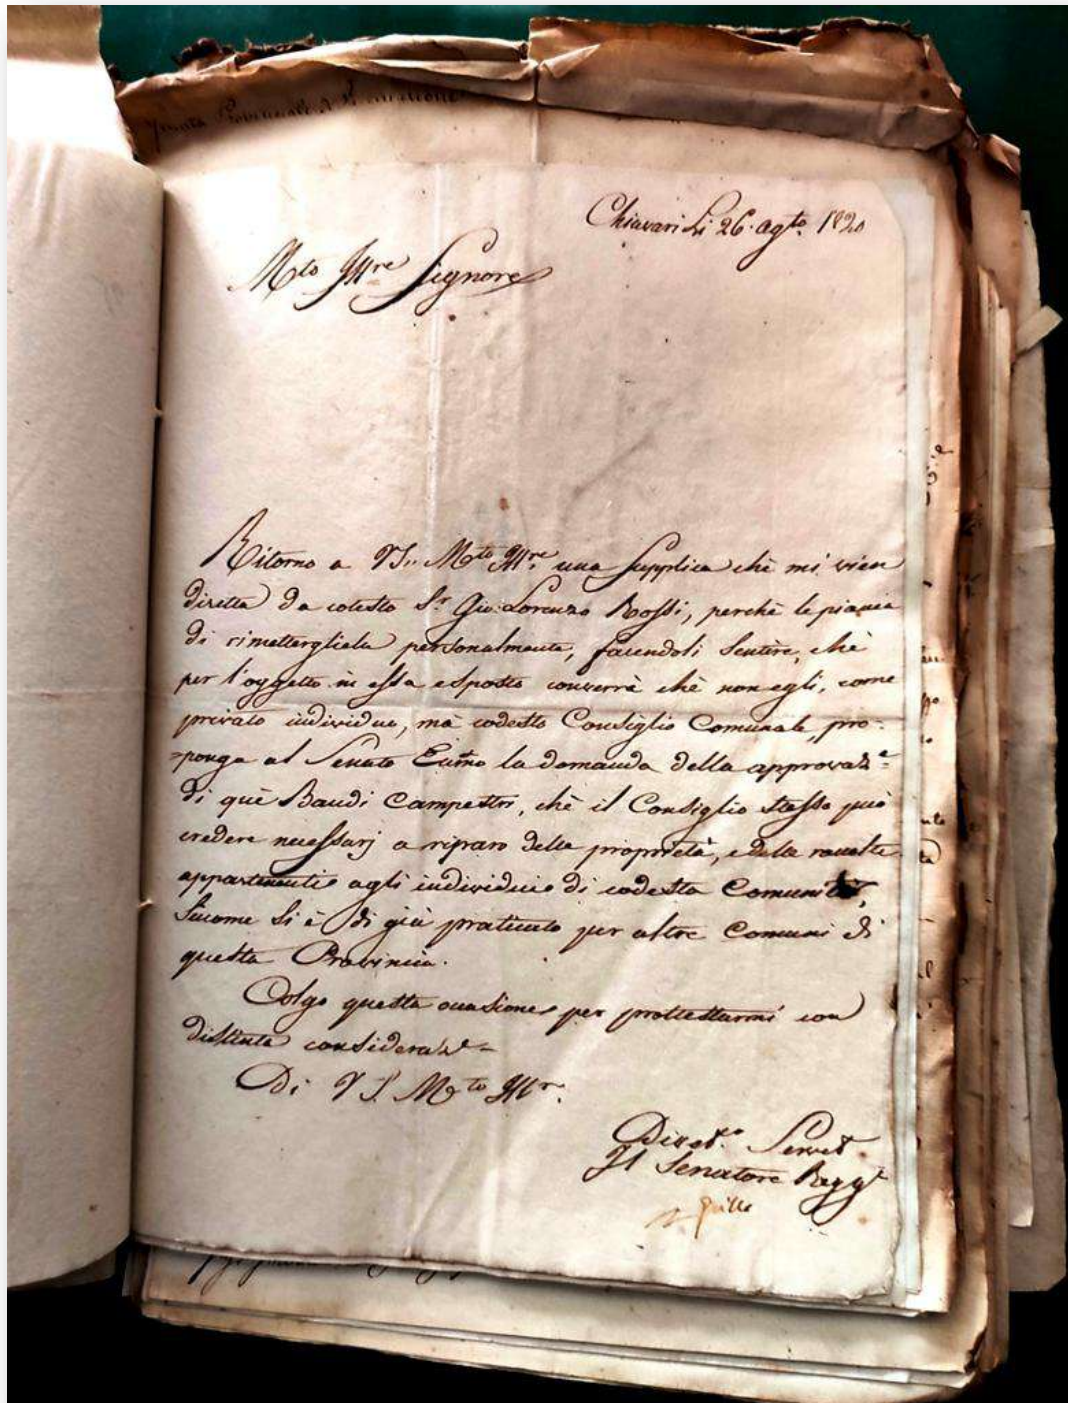 Chiavari li 26. agto. 1820
Mto Illre Signore
Ritorno a VS. Mto Illre una supplica chè mi vien
diretta da cotesto Sr. Gio: Lorenzo Rossi, perchè le piaccia
di rimettergliela personalmente, facendoli sentire, chè
per l'oggetto in essa esposto converrà chè non egli, come
privato individuo, mà codesto Consiglio Comunale, pro-
=ponga al Senato Eccmo la domanda della approvaze
di què Bandi Campestri, chè il Consiglio stesso può
credere necessarj a riparo della proprietà, e delle raccolte
appartenenti agli individui di codesta Comunità,
siccome si è di già praticato per altre Comuni di
questa Provincia.
Colgo questa occasione per prottestarmi con
distinta consideraze
Di VS. Mto Illr.
Il Senatore Regge